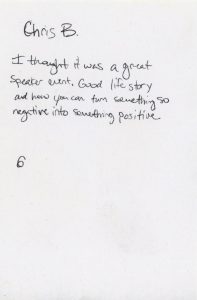 Chris B.
I thought it was a great
speaker event. Good life story
and how you can turn something so
negative into something positive
6